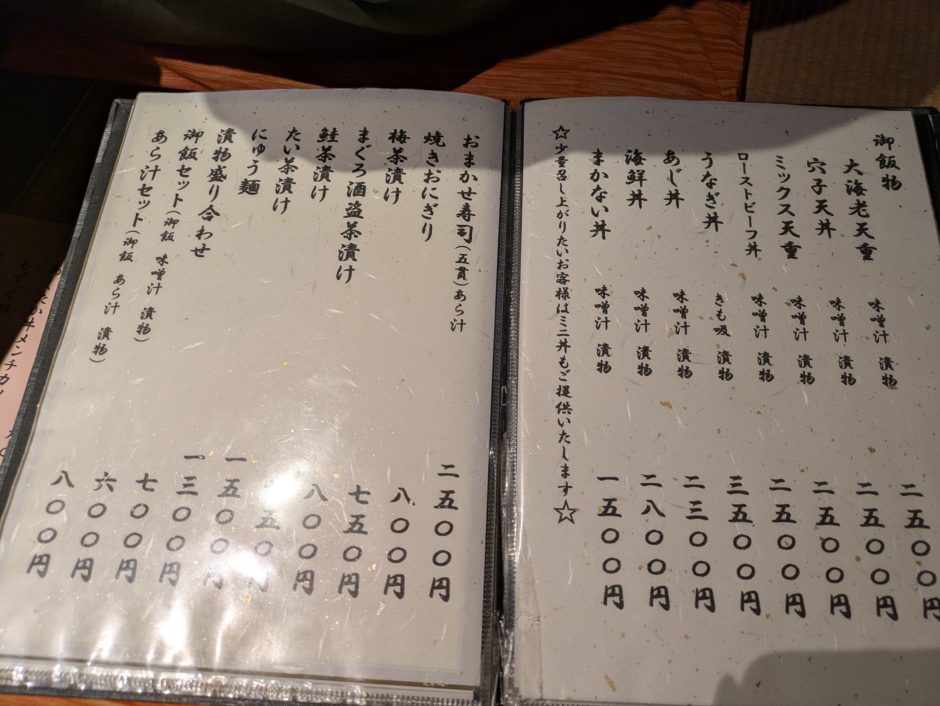 御飯物
大海老天重 味噌汁 漬物 二五〇〇円
穴子天丼 味噌汁 漬物 二五〇〇円
ミックス天重 味噌汁 漬物 二五〇〇円
ローストビーフ丼 味噌汁 漬物 二五〇〇円
うなぎ丼 きも吸 漬物 三五〇〇円
あじ丼 味噌汁 漬物 二三〇〇円
海鮮丼 味噌汁 漬物 二八〇〇円
まかない丼 味噌汁 漬物 一五〇〇円
☆少量召し上がりたいお客様はミニ丼もご提供いたします☆
おまかせ寿司(五貫)あら汁 二五〇〇円
焼きおにぎり 八〇〇円
梅茶漬け 七五〇円
まぐろ酒盗茶漬け 八〇〇円
鮭茶漬け
たい茶漬け 一五〇〇円
にゅう麺 一三〇〇円
漬物盛り合わせ 七〇〇円
御飯セット(御飯 味噌汁 漬物) 六〇〇円
あら汁セット(御飯 あら汁 漬物) 八〇〇円